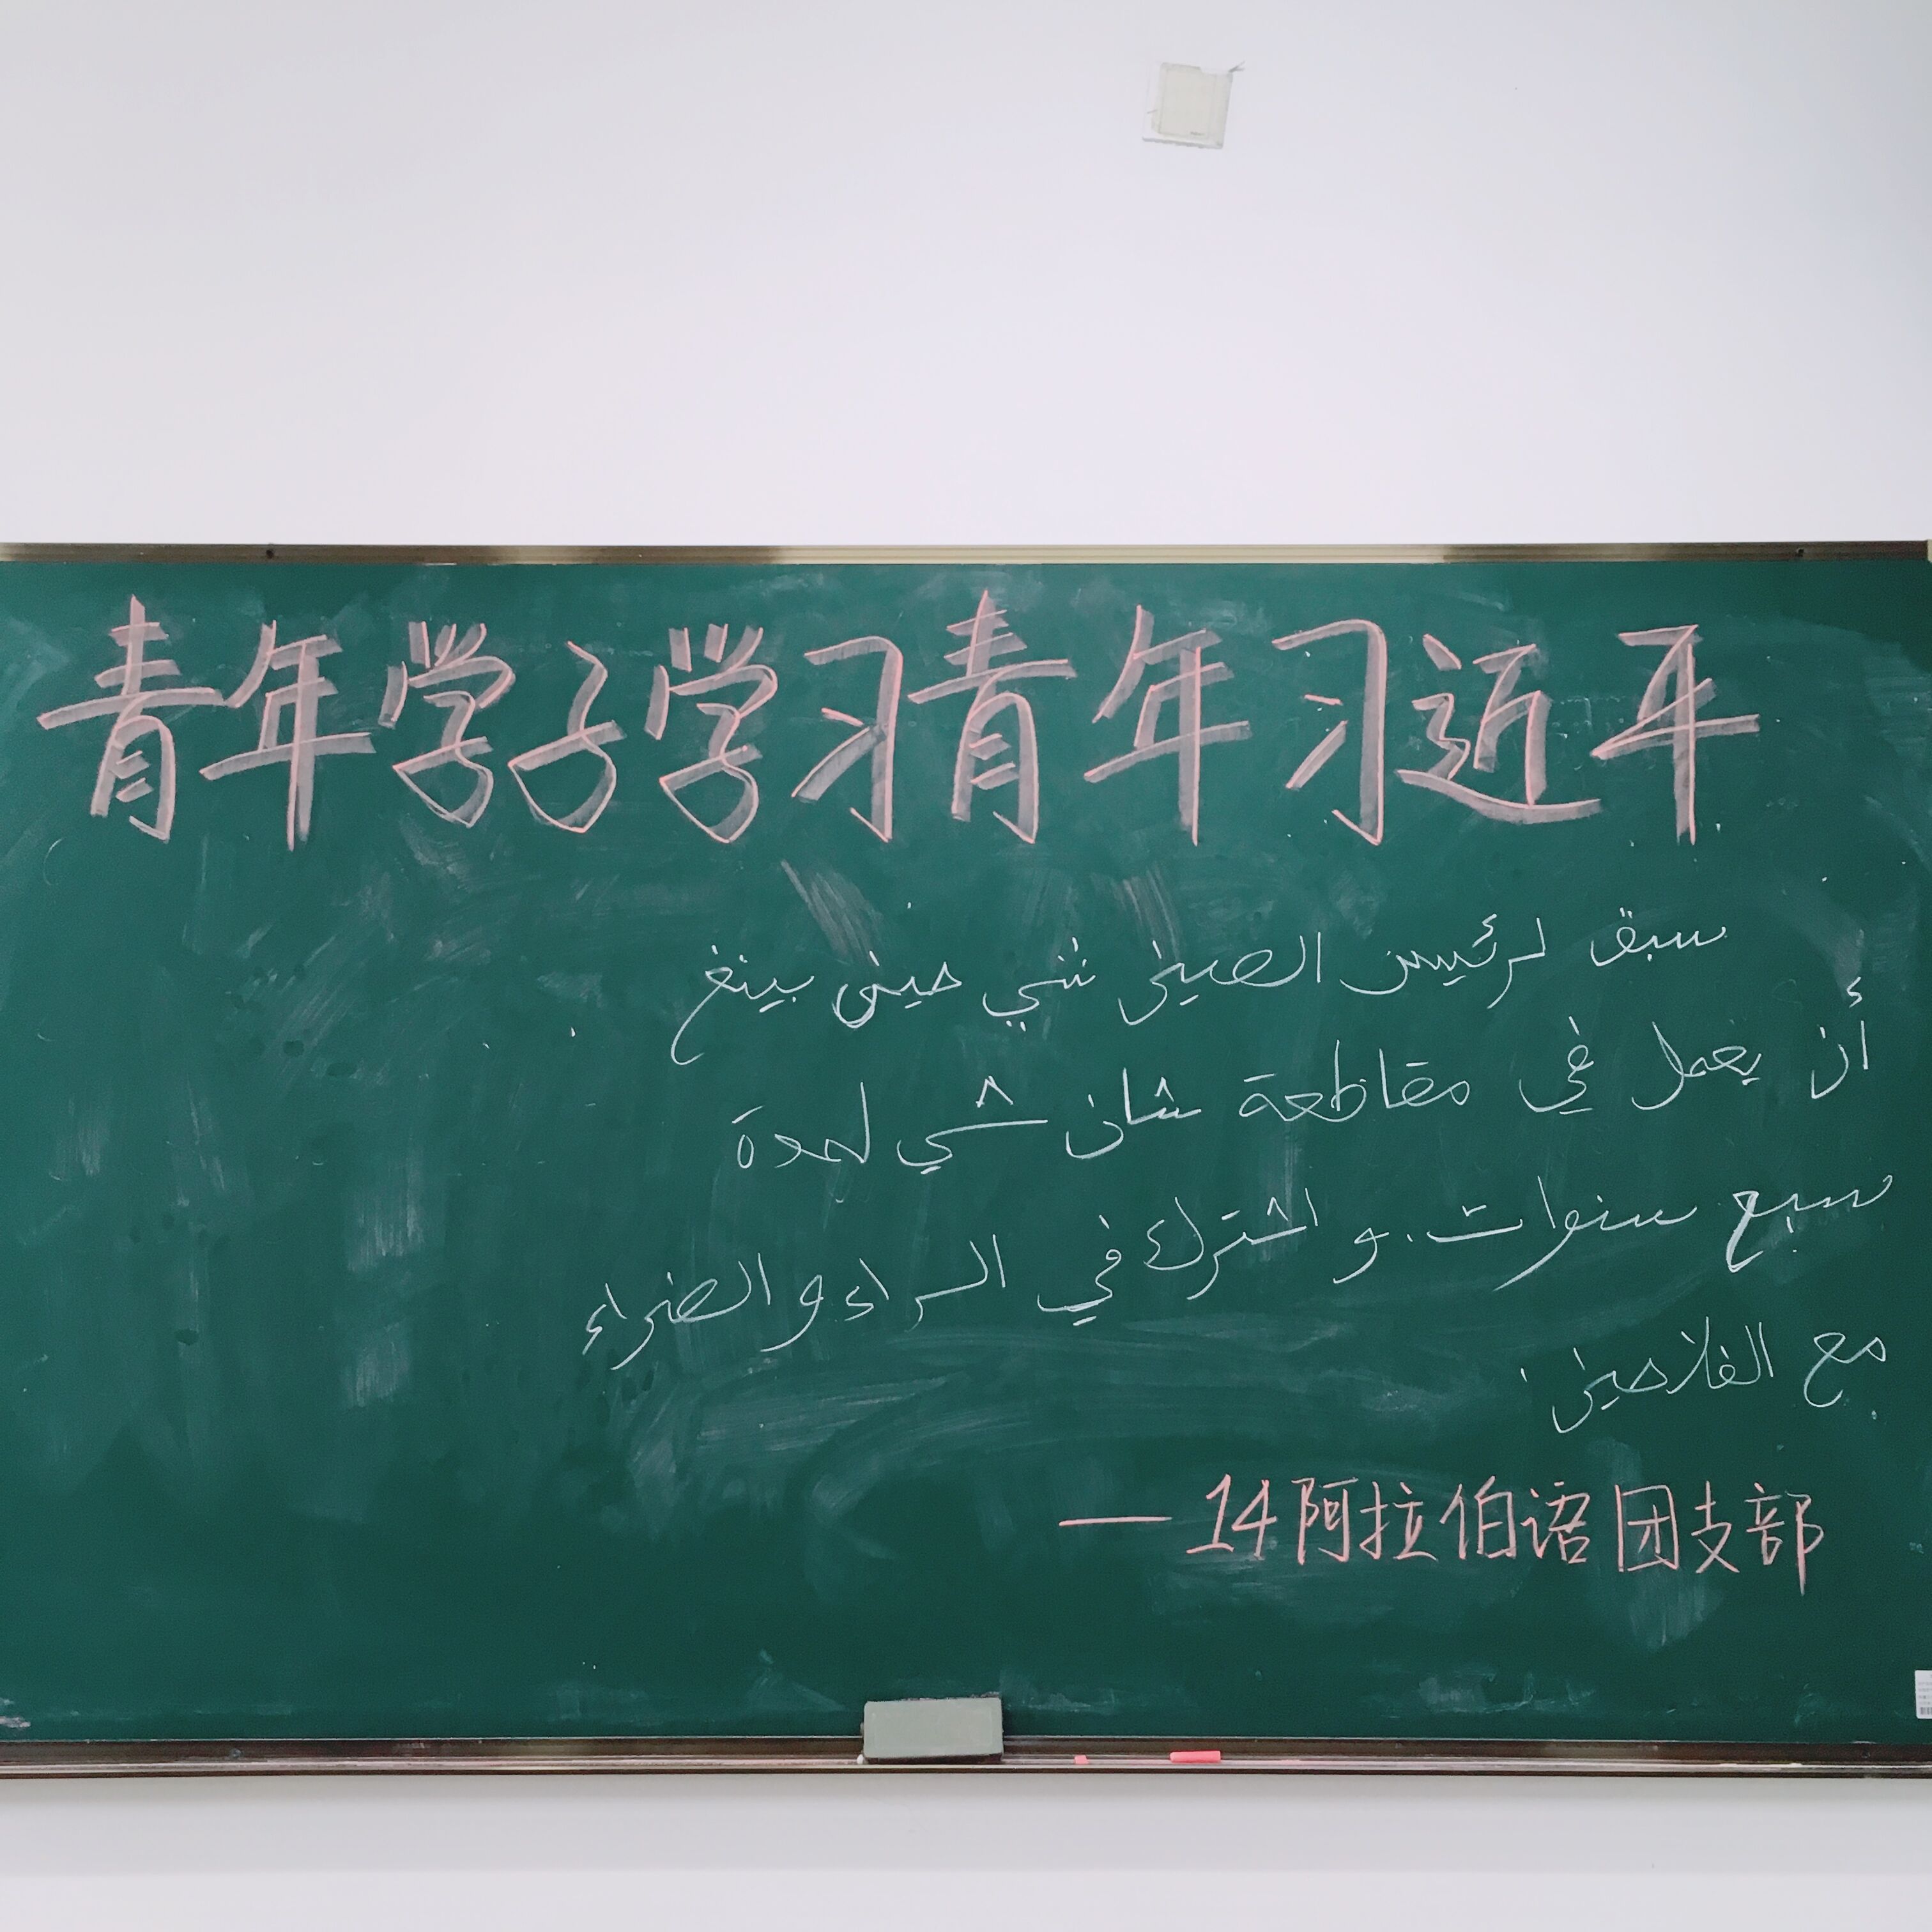 青年学子学习青年习近平
سبق لرئيس الصين شي حين بينغ
أن يعمل في مقاطعة شان شي لمدة
سبع سنوات. و اشترك في السراء و الضراء
مع الفلاحين.
— 14阿拉伯语团支部